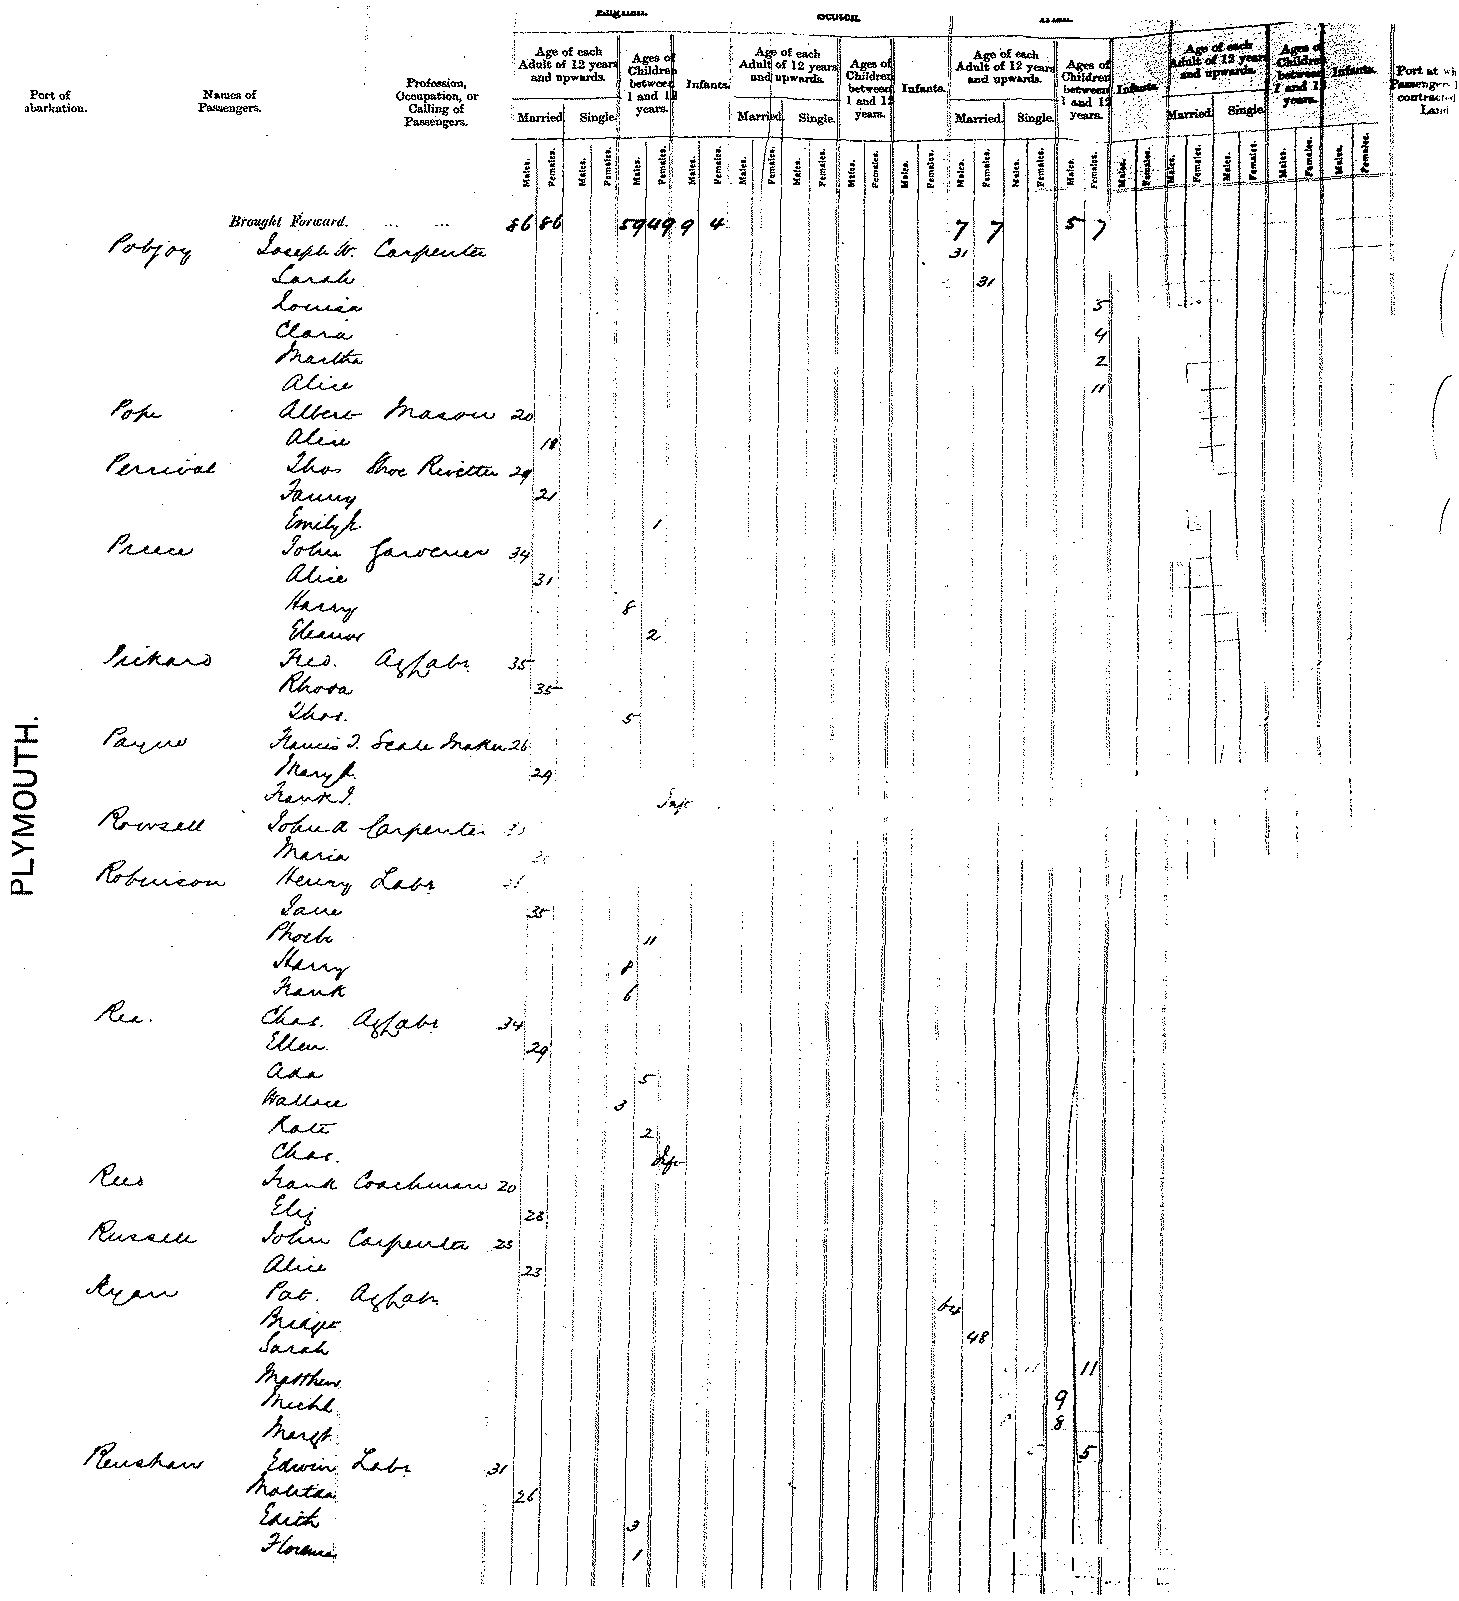 English. SCOTCH.
Port of abarkation. Names of Passengers. Profession, Occupation, or Calling of Passengers. Age of each Adult of 12 years and upwards. Ages of Children between 1 and 12 years. Infants. Age of each Adult of 12 years and upwards. Ages of Children between 1 and 12 years. Infants. Age of each Adult of 12 years and upwards. Ages of Children between 1 and 12 years. Infants. Age of each Adult of 12 years and upwards. Ages of Children between 1 and 12 years. Infants. Port at wh Passengers contracted Land
Married. Single. Married. Single. Married. Single. Married. Single.
Males. Females. Males. Females. Males. Females. Males. Females. Males. Females. Males. Females. Males. Females. Males. Females. Males. Females. Males. Females. Males. Females. Males. Females. Males. Females. Males. Females. Males. Females. Males. Females.
Brought Forward. ... ... 86 86 59 49 9 4 7 7 5 7
Pobjoy Joseph W. Carpenter 31
Sarah 31
Louisa 5
Clara 4
Martha 2
Alice 11
Pope Albert Mason 20
Alice 18
Percival Thos Shoe Rivetter 29
Fanny 21
Emily 1
Preece John Gardener 34
Alice 31
Harry 8
Eleanor 2
Pickard Fred. Ag Labr 35
Rhoda 35
Thos. 5
Payne Francis J. Scale Maker 26
Mary A. 29
Frank J. Inft
Rowsell John A Carpenter
Maria
Robinson Henry Labr
Jane 35
Phoebe 11
Harry 8
Frank 6
Rea. Chas. Ag Labr 34
Ellen 29
Ada 5
Wallace 3
Kate 2
Chas. Inft
Rees Frank Coachman 20
Eliz 28
Russell John Carpenter 25
Alice 23
Ryan Pat. Ag Labr 64
Bridget 48
Sarah 11
Matthew 9
Michl 8
Margt 5
Renshaw Edwin Labr 31
Matilda 26
Edith 3
Florence 1
PLYMOUTH.